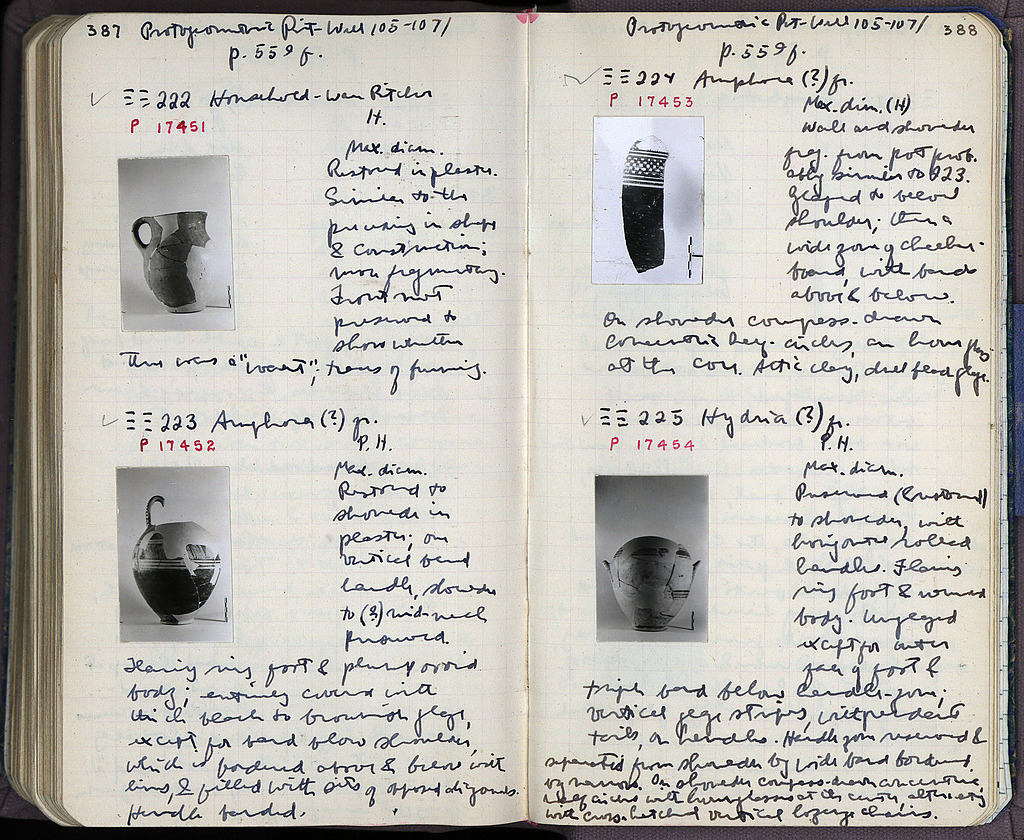 387 Protogeometric Pit-Well 105-107/
p. 559 f.
ΞΞ 222 Household-ware Pitcher
P 17451
H.
Max. diam.
Restored in plaster.
Similar to the
preceding in shape
& construction;
more fragmentary.
Front not
preserved to
show whether
this was a "waert"; traces of burning.
ΞΞ 223 Amphora (?) fr.
P 17452
P.H.
Max. diam.
Restored to
shoulder in
plaster; one
vertical band
handle, shoulder
to (?) mid-neck
preserved.
Flaring ring foot & plump ovoid
body; entirely covered with
thick black to brownish glaze,
except for band below shoulder,
which is bordered above & below with
lines, & filled with sets of opposed diagonals.
Handle banded.
Protogeometric Pit-Well 105-107/ 388
p. 559 f.
ΞΞ 224 Amphora (?) fr.
P 17453
Max. dim. (H)
Wall and shoulder
frag. from pot prob-
ably similar to 223.
Glazed to below
shoulder; then a
wide zone of checker-
board, with bands
above & below.
On shoulder compass-drawn
concentric semi-circles, an hour glass
at the cen. Attic clay, dull black glaze.
ΞΞ 225 Hydria (?) fr.
P 17454
P.H.
Max. diam.
Preserved (& restored)
to shoulder, with
horizontal rolled
handles. Flaring
ring foot & rounded
body. Unglazed
except for outer
face of foot &
triple band below handle-zone;
vertical glaze stripes, with pendent
tails, on handles. Handle zone reserved &
separated from shoulder by wide band bordered
by narrow. On shoulder compass-drawn concentric
half circles with hourglasses at the center, alternating
with cross-hatched vertical lozenge chains.